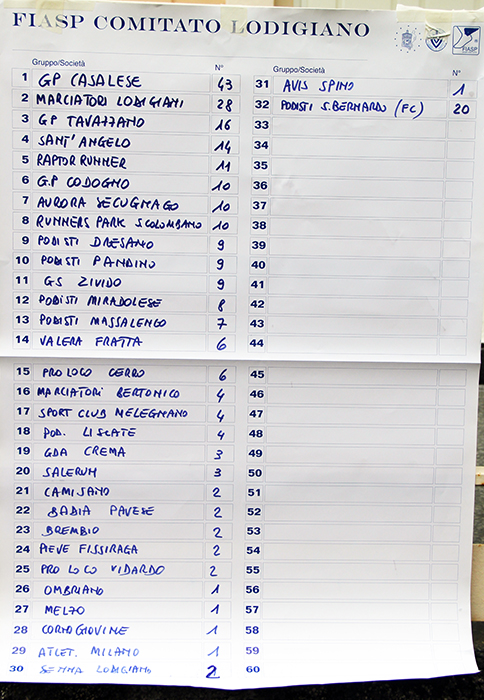 FIASP COMITATO LODIGIANO
FIASP
Gruppo/Società N°
1 GP CASALESE 43
2 MARCIATORI LODIGIANI 28
3 GP TAVAZZANO 16
4 SANT'ANGELO 14
5 RAPTOR RUNNER 11
6 G.P CODOGNO 10
7 AURORA SECUGNAGO 10
8 RUNNERS PARK S.COLOMBANO 10
9 PODISTI DRESANO 9
10 PODISTI PANDINO 9
11 GS ZIVIDO 9
12 PODISTI MIRADOLESE 8
13 PODISTI MASSALENGO 7
14 VALERA FRATTA 6
15 PRO LOCO CERRO 6
16 MARCIATORI BERTONICO 4
17 SPORT CLUB MELEGNANO 4
18 POD. LISCATE 4
19 GDA CREMA 3
20 SALERUM 3
21 CAMISANO 2
22 BADIA PAVESE 2
23 BREMBIO 2
24 PIEVE FISSIRAGA 2
25 PRO LOCO VIDARDO 2
26 OMBRIANO 1
27 MELZO 1
28 CORNOGIOVINE 1
29 ATLET. MILANO 1
30 SENNA LODIGIANO 2
Gruppo/Società N°
31 AVIS SPINO 1
32 PODISTI S.BERNARDO (FC) 20
33
34
35
36
37
38
39
40
41
42
43
44
45
46
47
48
49
50
51
52
53
54
55
56
57
58
59
60